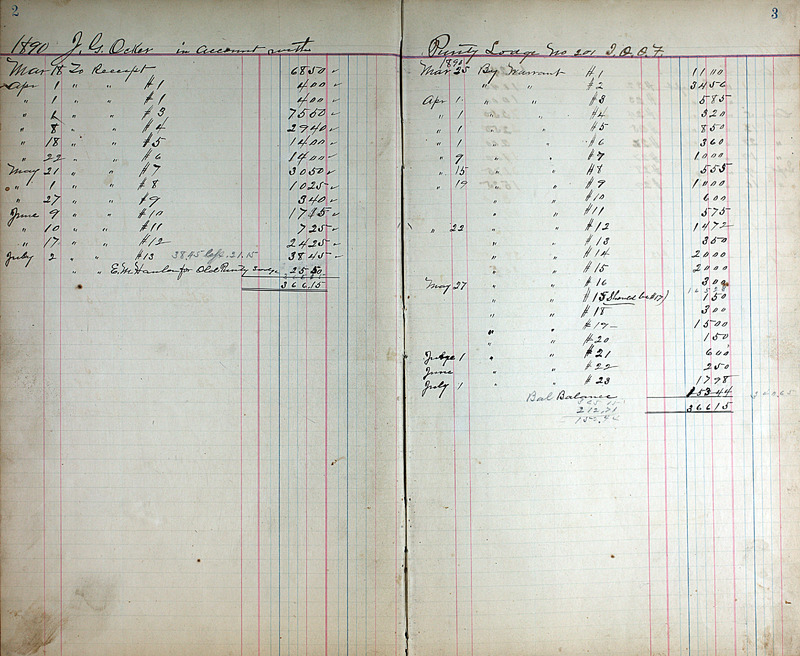 2
1890 J. G. Ocker in account with
Mar 18 To Receipt 68 50
Apr 1 " " #1 4 00
" 1 " " #1 4 00
" " " #3 75 50
" 8 " " #4 29 40
" 18 " " #5 14 00
" 22 " " #6 14 00
May 21 " " #7 30 50
" 1 " " #8 10 25
" 27 " " #9 3 40
June 9 " " #10 17 15
" 10 " " #11 7 25
" 17 " " #12 24 25
July 2 " " #13 38.45 21.15 38 45
" " E. M. Hanlon for Old Purity 25 50
366 15
3
Purity Lodge No 201 I.O.O.F.
1891
Mar 25 By Warrant #1 11 00
" " #2 34 50
Apr 1 " " #3 5 85
" 1 " " #4 3 20
" 1 " " #5 8 50
" 1 " " #6 3 60
" 9 " " #7 10 00
" 15 " " #8 5 55
" 19 " " #9 10 00
" " #10 6 00
" " #11 5 75
" 22 " " #12 14 72
" " #13 3 50
" " #14 20 00
" " #15 20 00
May 27 " " #16 3 00
" " #15 (Should be #17) 1 50
" " #18 3 00
" " #19 15 00
" " #20 1 50
1 " " #21 6 00
June " " #22 2 50
July 1 " " #23 17 98
Bal Balance 153 44
366 15
212.71